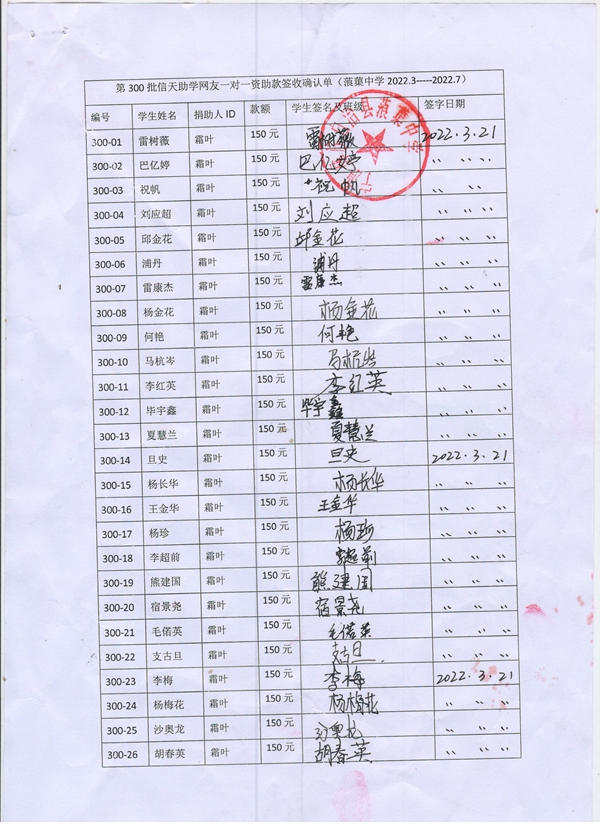 第 300 批信天助学网友一对一资助款签收确认单（蒗蕖中学 2022.3-----2022.7）
编号 学生姓名 捐助人 ID 款额 学生签名及班级 签字日期
300-01 雷树薇 霜叶 150 元 雷树薇 2022.3.21
300-02 巴亿婷 霜叶 150 元 巴亿婷 〃 〃 〃
300-03 祝帆 霜叶 150 元 祝帆 〃 〃 〃
300-04 刘应超 霜叶 150 元 刘应超 〃 〃 〃
300-05 邱金花 霜叶 150 元 邱金花 〃 〃 〃
300-06 浦丹 霜叶 150 元 浦丹 〃 〃 〃
300-07 雷康杰 霜叶 150 元 雷康杰 〃 〃 〃
300-08 杨金花 霜叶 150 元 杨金花 〃 〃 〃
300-09 何艳 霜叶 150 元 何艳 〃 〃 〃
300-10 马杭岑 霜叶 150 元 马杭岑 〃 〃 〃
300-11 李红英 霜叶 150 元 李红英 〃 〃 〃
300-12 毕宇鑫 霜叶 150 元 毕宇鑫 〃 〃 〃
300-13 夏慧兰 霜叶 150 元 夏慧兰 〃 〃 〃
300-14 旦史 霜叶 150 元 旦史 2022.3.21
300-15 杨长华 霜叶 150 元 杨长华 〃 〃 〃
300-16 王金华 霜叶 150 元 王金华 〃 〃 〃
300-17 杨珍 霜叶 150 元 杨珍 〃 〃 〃
300-18 李超前 霜叶 150 元 李超前 〃 〃 〃
300-19 熊建国 霜叶 150 元 熊建国 〃 〃 〃
300-20 宿景尧 霜叶 150 元 宿景尧 〃 〃 〃
300-21 毛偌英 霜叶 150 元 毛偌英 〃 〃 〃
300-22 支古旦 霜叶 150 元 支古旦 〃 〃 〃
300-23 李梅 霜叶 150 元 李梅 2022.3.21
300-24 杨梅花 霜叶 150 元 杨梅花 〃 〃 〃
300-25 沙奥龙 霜叶 150 元 沙奥龙 〃 〃 〃
300-26 胡春英 霜叶 150 元 胡春英 〃 〃 〃